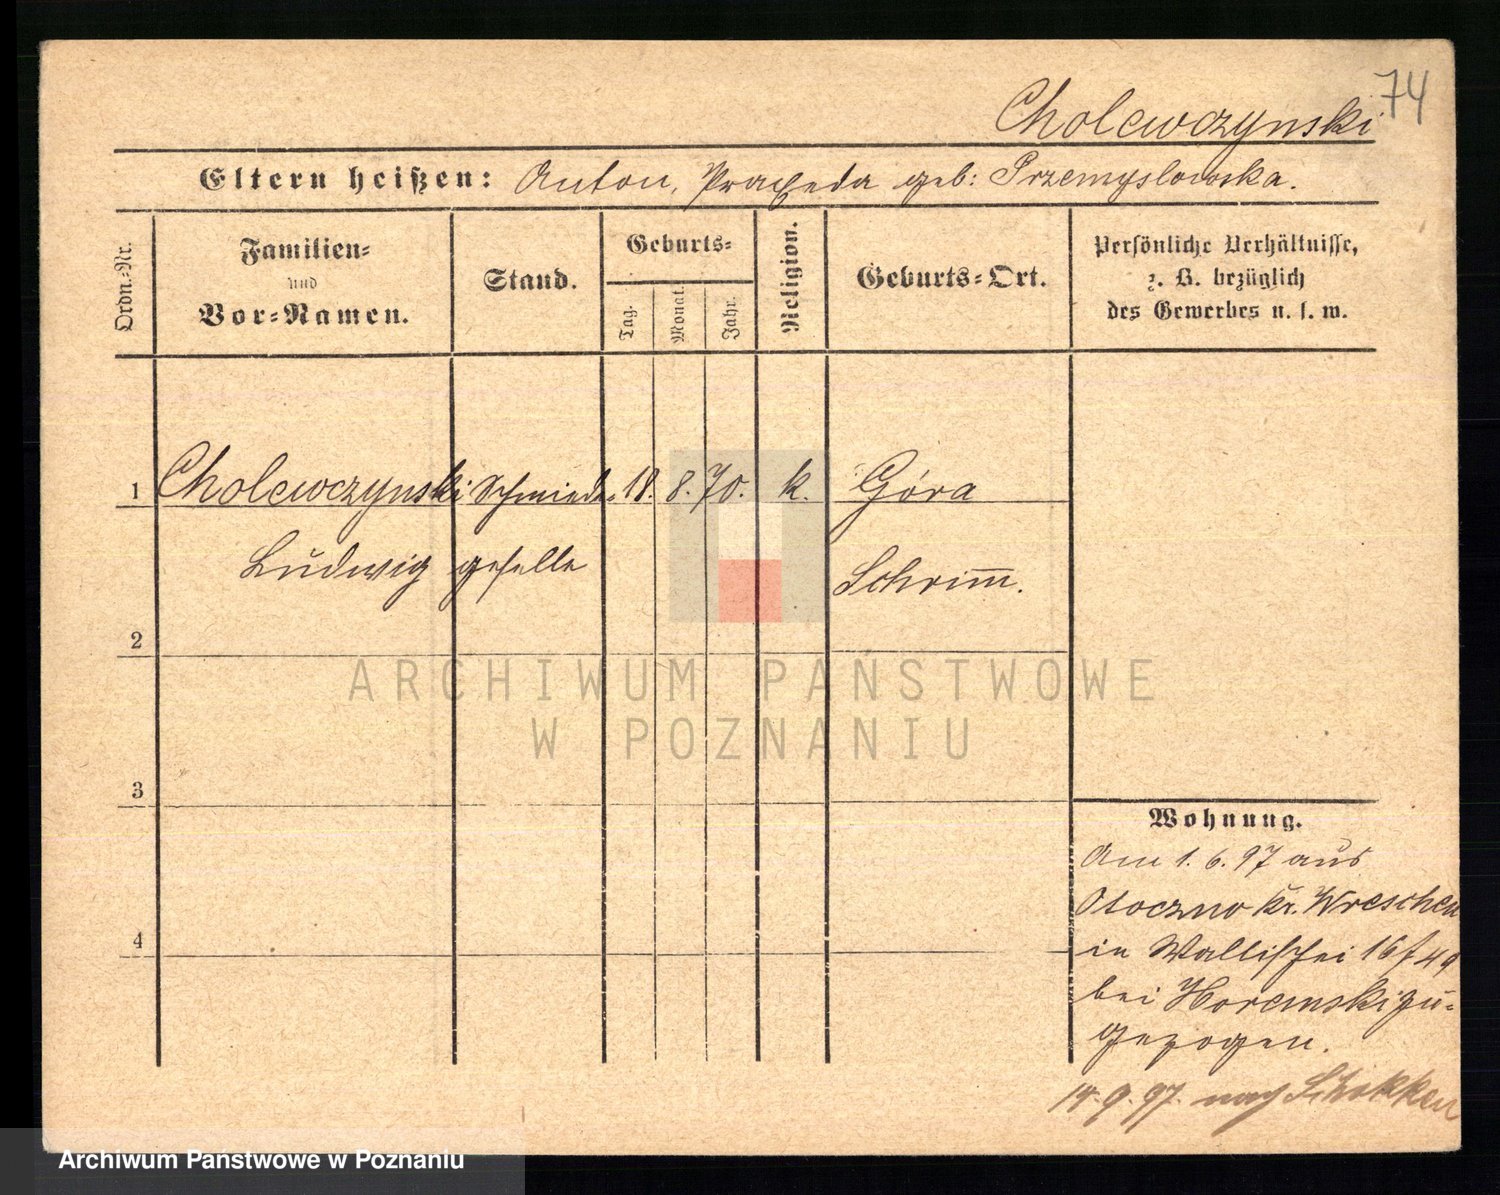 74
Cholewczynski
Eltern heißen: Anton, Praxeda geb: Przemyslowska.
Ordn.=Nr.
Familien=
und
Vor=Namen.
Stand.
Geburts=
Tag.
Monat.
Jahr.
Religion.
Geburts=Ort.
Persönliche Verhältnisse,
z. B. bezüglich
des Gewerbes u. s. w.
1 Cholewczynski Schmiede= 18. 8. 70. k. Góra
Ludwig geselle Schrimm.
2
3
4
Wohnung.
Am 1. 6. 97 aus
Otoczno Kr. Wreschen
in Wallischei 16/49
bei Horemski zu=
gezogen.
14. 9. 97. nach Schokken
ARCHIWUM PAŃSTWOWE
W POZNANIU
Archiwum Państwowe w Poznaniu